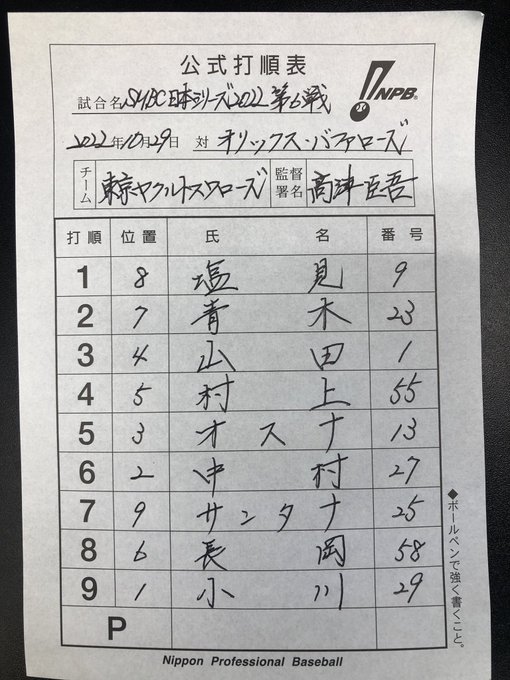 公式打順表
NPB
試合名 SMBC日本シリーズ2022 第6戦
2022年10月29日 対 オリックス・バファローズ
チーム 東京ヤクルトスワローズ 監督署名 高津臣吾
打順 位置 氏名 番号
1 8 塩見 9
2 7 青木 23
3 4 山田 1
4 5 村上 55
5 3 オスナ 13
6 2 中村 27
7 9 サンタナ 25
8 6 長岡 58
9 1 小川 29
P
◆ボールペンで強く書くこと。
Nippon Professional Baseball